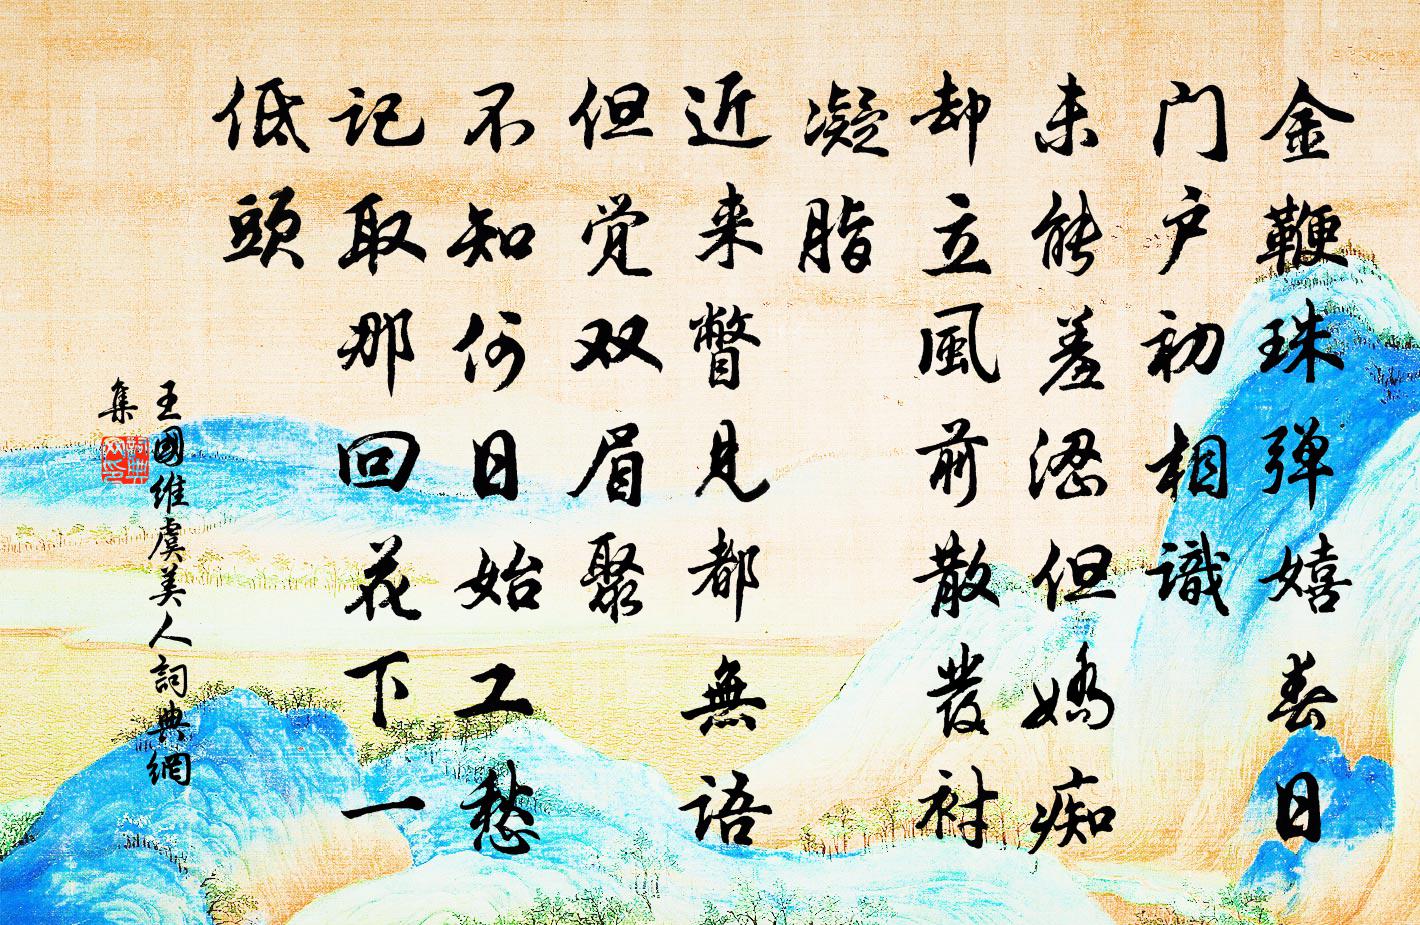 金鞭珠弹嬉春日
门户初相識
未能羞澀但嬌痴
却立風前散發衬
凝脂
近来瞥見都無语
但觉双眉聚
不知何日始工愁
记取那回花下一
低頭
王國维虞美人詞典網
集